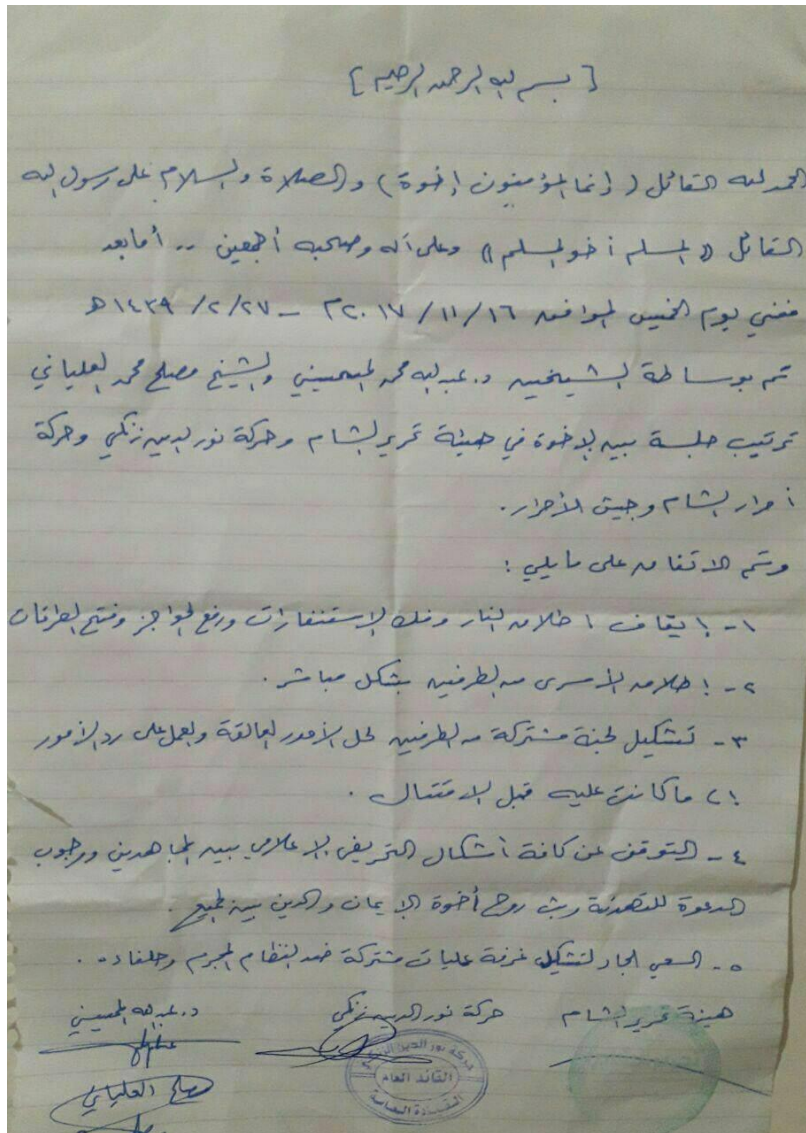 [بسم الله الرحمن الرحيم]
الحمد لله القائل (إنما المؤمنون إخوة) والصلاة والسلام على رسول الله
القائل «المسلم أخو المسلم» وعلى آله وصحبه أجمعين .. أما بعد
ففي يوم الخميس الموافق ١٦/١١/٢٠١٧م - ٢٧/٢/١٤٣٩هـ
تم بوساطة الشيخين د. عبد الله محمد المحيسني والشيخ مصلح محمد العلياني
ترتيب جلسة بين الإخوة في هيئة تحرير الشام وحركة نور الدين زنكي وحركة
أحرار الشام وجيش الأحرار.
وتم الاتفاق على ما يلي :
١- إيقاف اطلاق النار وفك الاستنفارات ورفع الحواجز وفتح الطرقات
٢- إطلاق الأسرى من الطرفين بشكل مباشر.
٣- تشكيل لجنة مشتركة من الطرفين لحل الأمور العالقة والعمل على رد الأمور
إلى ما كانت عليه قبل الاقتتال.
٤- التوقف عن كافة أشكال التحريض الإعلامي بين المجاهدين ووجوب
الدعوة للتهدئة وبث روح أخوة الإيمان والدين بين الجميع.
٥- السعي الجاد لتشكيل غرفة عمليات مشتركة ضد النظام المجرم وحلفاءه.
هيئة تحرير الشام حركة نور الدين زنكي د. عبد الله المحيسني
حركة نور الدين الزنكي
القائد العام
القيادة العامة
مصلح العلياني